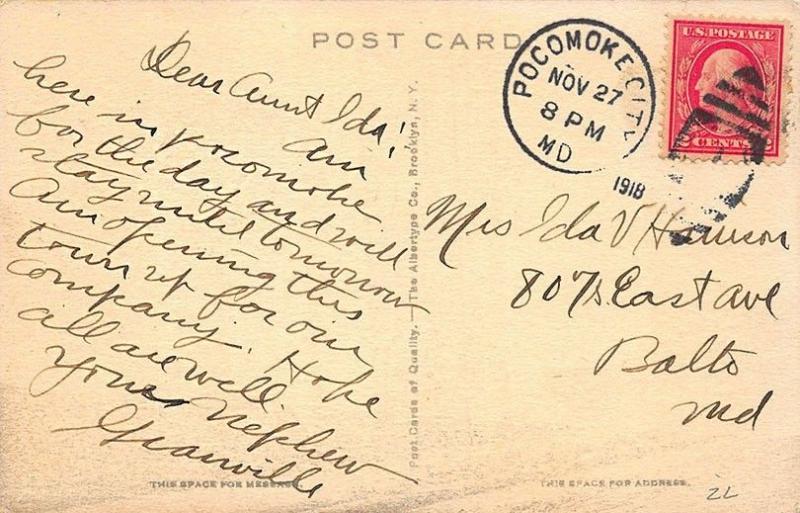 POST CARD
Dear Aunt Ida;
Am
here in pocomoke
for the day and will
stay until tomorrow
Am opening this
town up for our
company. Hope
all are well.
Your Nephew
Granville
THIS SPACE FOR MESSAGE.
Post Cards of Quality. — The Albertype Co., Brooklyn, N. Y.
POCOMOKE CITY
NOV 27
8 PM
MD
1918
U.S. POSTAGE
CENTS 2
Mrs Ida V Harrison
807 S East ave
Balto
Md
THIS SPACE FOR ADDRESS.
2L